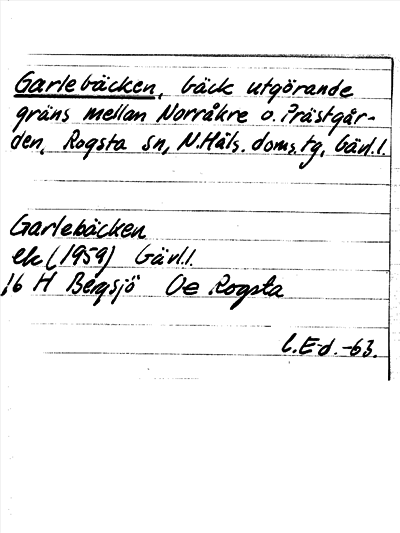 Garlebäcken, bäck utgörande
gräns mellan Norråkre o. Prästgår-
den, Rogsta sn, N.Häls. doms.tg, Gävl.l.
Garlebäcken
ek (1959) Gävl.l.
16 H Bergsjö Oe Rogsta
C.E-d. -63.